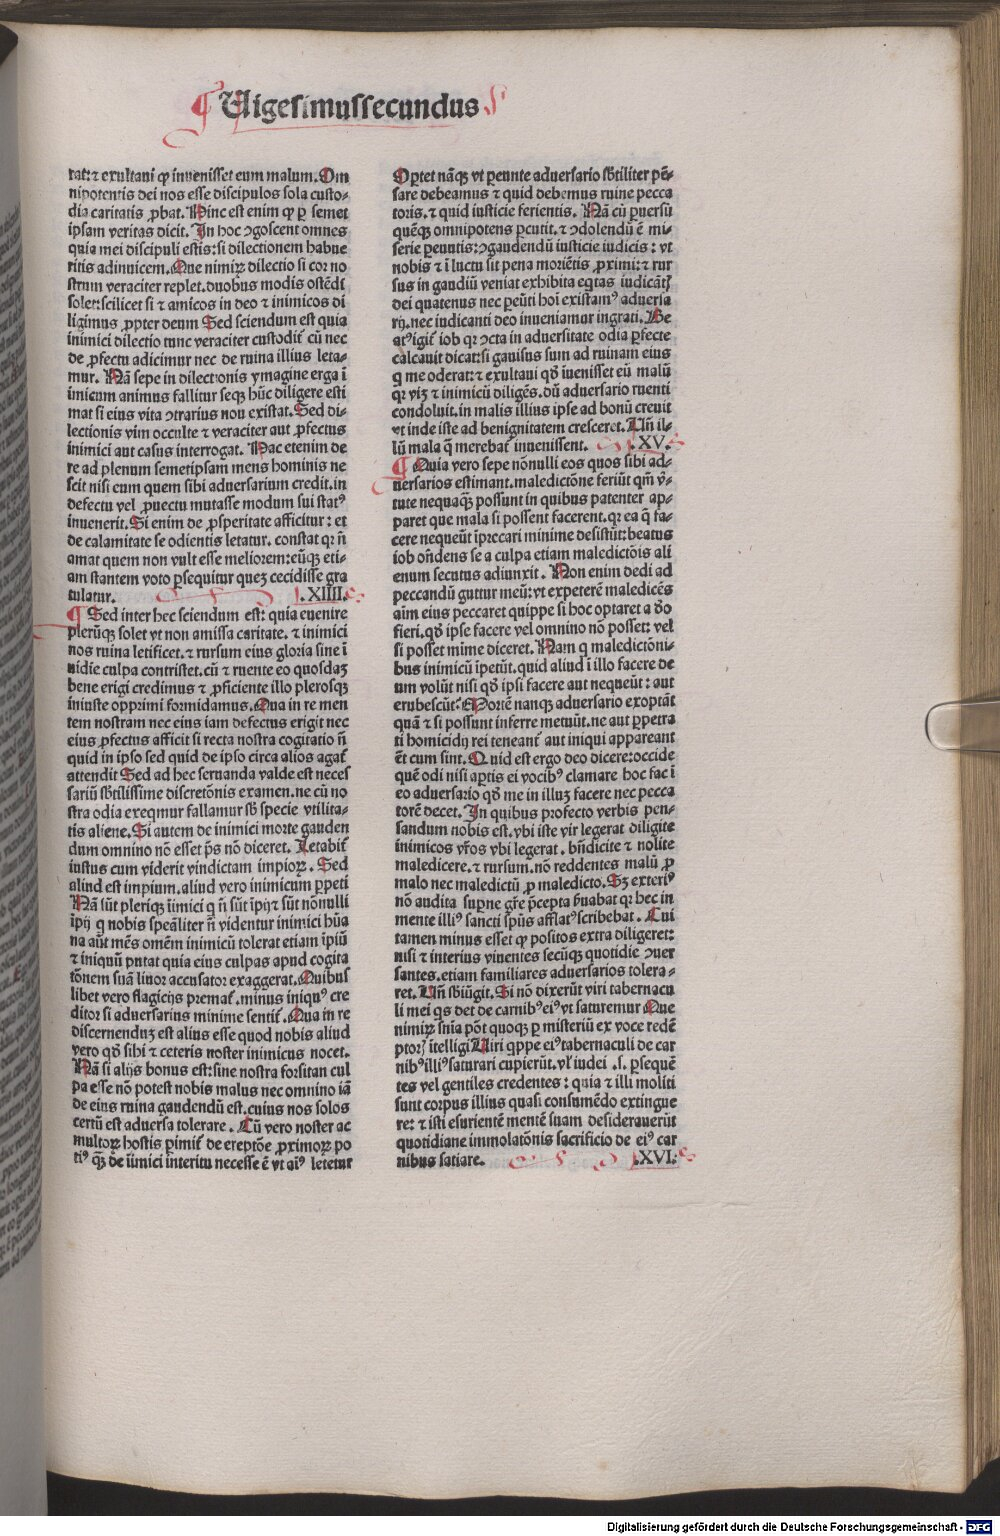 ¶ Uigesimussecundus
rat: ⁊ exultaui ꝙ inuenisset eum malum. Om
nipotentis dei nos esse discipulos sola custo-
dia caritatis ꝓbat. Hinc est enim ꝙ ꝑ semet
ipsam veritas dicit. In hoc ↄgoscent omnes
quia mei discipuli estis: si dilectionem habue
ritis adinuicem. Que nimiꝝ dilectio si cor no
strum veraciter replet. duobus modis ostēdi
solet: scilicet si ⁊ amicos in deo ⁊ inimicos di
ligimus ꝓpter deum Sed sciendum est quia
inimici dilectio tunc veraciter custodit̄ cū nec
de ꝓfectu adicimur nec de ruina illius leta-
mur. Nā sepe in dilectionis ymagine erga ī
imicum animus fallitur seqꝫ hūc diligere esti
mat si eius vita ↄtrarius non existat. Sed di-
lectionis vim occulte ⁊ veraciter aut ꝓfectus
inimici aut casus interrogat. Hac etenim de
re ad plenum semetipsam mens hominis ne
scit nisi cum quem sibi aduersarium credit. in
defectu vel ꝓuectu mutasse modum sui statꝰ
inuenerit. Si enim de ꝓsperitate afficitur: et
de calamitate se odientis letatur. constat qr n̄
amat quem non vult esse meliorem: eūqꝫ eti-
am stantem voto ꝑsequitur queꝫ cecidisse gra
tulatur. .XIIII.
¶ Sed inter hec sciendum est: quia euenire
plerūqꝫ solet vt non amissa caritate. ⁊ inimici
nos ruina letificet. ⁊ rursum eius gloria sine ī
uidie culpa contristet. cū ⁊ ruente eo quosdaꝫ
bene erigi credimus ⁊ ꝓficiente illo plerosqꝫ
iniuste opprimi formidamus. Qua in re men
tem nostram nec eius iam defectus erigit nec
eius ꝓfectus afficit si recta nostra cogitatio n̄
quid in ipso sed quid de ipso circa alios agat̄
attendit Sed ad hec seruanda valde est neces
sariū sb̄tilissime discretōnis examen. ne cū no
stra odia exeqmur fallamur sb̄ specie vtilita-
tis aliene. Si autem de inimici morte gauden
dum omnino nō esset p̄s nō diceret. Letabit̄
iustus cum viderit vindictam impioꝝ. Sed
aliud est impium. aliud vero inimicum ꝑpeti
Nā sūt pleriqꝫ īimici q n̄ sūt īpij ⁊ sūt nōnulli
īpij q nobis speāliter n̄ videntur inimici hūa
na aūt mēs omēm inimicū tolerat etiam īpiū
⁊ iniquū putat quia eius culpas apud cogita
tōnem suā liuor accusator exaggerat. Quibus
libet vero flagicijs premat̄. minus iniquꝰ cre
ditor si aduersarius minime sentit̄. Qua in re
discernenduꝫ est alius esse quod nobis aliud
vero qd̄ sibi ⁊ ceteris noster inimicus nocet.
Nā si alijs bonus est: sine nostra forsitan cul
pa esse nō potest nobis malus nec omnino iā
de eius ruina gaudendū est. cuius nos solos
certū est aduersa tolerare. Cū vero noster ac
multoꝝ hostis ꝑimit̄ de ereptōe ꝓximoꝝ po
tiꝰ qꝫ de īimici interitu necesse ē vt aīꝰ letetur
Oportet nāqꝫ vt ꝑeunte aduersario sb̄tiliter pē-
sare debeamus ⁊ quid debemus ruine pecca
toris. ⁊ quid iusticie ferientis. Nā cū ꝑuersū
quēqꝫ omnipotens ꝑcutit. ⁊ ↄdolendū ē mi-
serie ꝑeuntis: ↄgaudendū iusticie iudicis: vt
nobis ⁊ ī luctu sit pena moriētis ꝓximi: ⁊ rur
sus in gaudiū veniat exhibita eqtas iudicātꝭ
dei quatenus nec ꝑeūti hoī existamꝰ aduersa
rij. nec iudicanti deo inueniamur ingrati. Be
atꝰ igit̄ iob qr ↄcta in aduersitate odia ꝑfecte
calcauit dicat: si gauisus sum ad ruinam eius
q me oderat: ⁊ exultaui qd̄ īuenisset eū malū
qr viꝫ ⁊ inimicū diligēs. dū aduersario ruenti
condoluit. in malis illius ipse ad bonū creuit
vt inde iste ad benignitatem cresceret. Un̄ il-
lū mala q̄ merebat̄ inuenissent. .XV.
¶ Quia vero sepe nōnulli eos quos sibi ad-
uersarios estimant. maledictōne feriūt qm̄ v̄-
tute nequaqꝫ possunt in quibus patenter ap-
paret que mala si possent facerent. qr ea q̄ fa-
cere nequeūt īprecari minime desistūt: beatus
iob on̄dens se a culpa etiam maledictōis ali
enum secutus adiunxit. Non enim dedi ad
peccandū guttur meū: vt expeterē maledicēs
aīm eius peccaret quippe si hoc optaret a do
fieri. qd̄ ipse facere vel omnino nō posset: vel
si posset mīme diceret. Nam q maledictōni-
bus inimicū īpetūt. quid aliud ī illo facere de
um volūt nisi qd̄ ipsi facere aut nequeūt: aut
erubescūt: Mortē nanqꝫ aduersario exoptāt
quā ⁊ si possunt inferre metuūt. ne aut ꝑpetra
ti homicidij rei teneant̄ aut iniqui appareant
ēt cum sint. Quid est ergo deo dicere: occide
quē odi nisi aꝑtis ei vocibꝰ clamare hoc fac ī
eo aduersario qd̄ me in illuꝫ facere nec pecca
torē decet. In quibus profecto verbis pen-
sandum nobis est. vbi iste vir legerat diligite
inimicos vr̄os vbi legerat. bn̄dicite ⁊ nolite
maledicere. ⁊ rursum. nō reddentes malū ꝓ
malo nec maledictū ꝓ maledicto. Sꝫ exteriꝰ
nō audita supne gr̄e p̄cepta ẜuabat qr hec in
mente illiꝰ sancti sp̄us afflatꝰ scribebat. Cui
tamen minus esset ꝙ positos extra diligeret:
nisi ⁊ interius viuentes secūqꝫ quotidie ↄuer
santes. etiam familiares aduersarios tolera-
ret. Un̄ sb̄iūgit. Si nō dixerūt viri tabernacu
li mei qs det de carnibꝰ eiꝰ vt saturemur Que
nimiꝝ sn̄ia pōt quoqꝫ ꝑ misteriū ex voce redē
ptorꝭ ītelligi Uiri qppe eiꝰ tabernaculi de car
nibꝰ illiꝰ saturari cupierūt. vl̓ iudei .s. ꝑsequē
tes vel gentiles credentes: quia ⁊ illi moliti
sunt corpus illius quasi consumēdo extingue
re: ⁊ isti esurientē mentē suam desiderauerūt
quotidiane immolatōnis sacrificio de eiꝰ car
nibus satiare. .XVI.
Digitalisierung gefördert durch die Deutsche Forschungsgemeinschaft - DFG